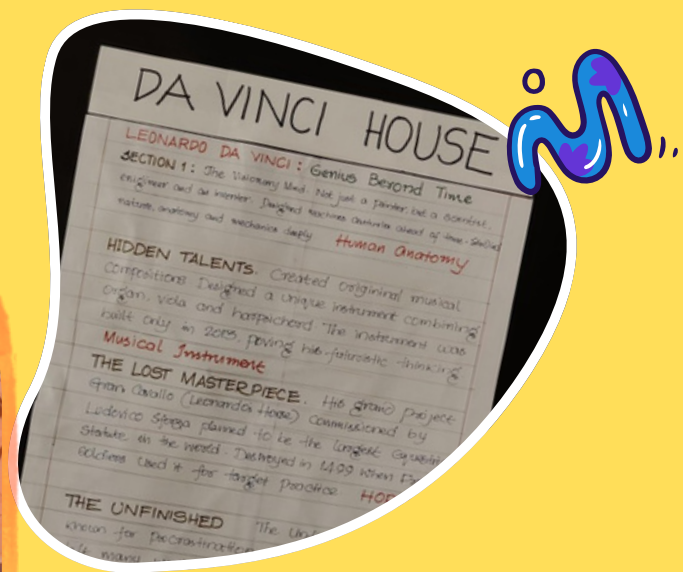 DA VINCI HOUSE
LEONARDO DA VINCI : Genius Berond Time
SECTION 1 : The Visionary Mind. Not just a painter, but a scientist,
engineer and an inventor. Designed machines centuries ahead of time. Studied
nature, anatomy and mechanics deeply Human Anatomy
HIDDEN TALENTS. Created originiral musical
compositions Designed a unique instrument combining
organ, viola and harpsichord The instrument was
built only in 2013, poving his futuristic thinking
Musical Instrument
THE LOST MASTERPIECE. His grand project
Gran Cavallo (Leonardo's Horse) Commissioned by
Lodovico planned to be the largest
Statute in the world. Destroyed in 1499 when
Soldiers used it for target practice
THE UNFINISHED The
known for
many